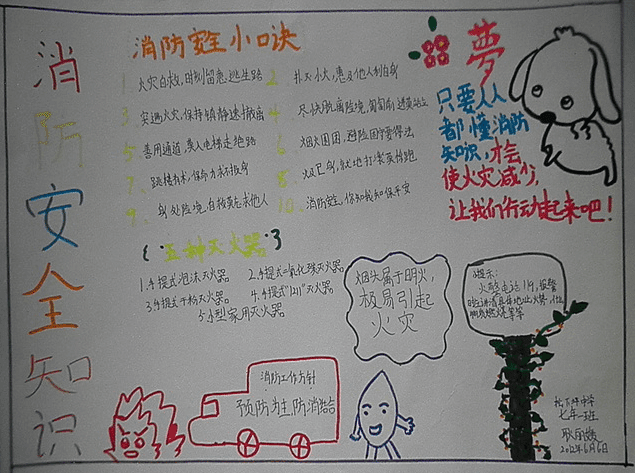 消防安全知识
消防安全小口诀
1. 火灾自救,时刻留意,逃生路
2. 扑灭小火,惠及他人利自身
3 突遇火灾,保持镇静速撤离
4. 尽快脱离险境,
5 善用通道,莫入电梯走绝路
6 烟火围困,避险固守要得法
7. 跳楼有术,保命力求
8. 火已及身,就地打滚莫惊跑
9. 身处险境,自救莫忘求他人
10. 消防安全,你知我知保平安
五种灭火器
1.手提式泡沫灭火器
2.手提式二氧化碳灭火器
3.手提式干粉灭火器
4.手提式"1211"灭火器
5.小型家用灭火器
梦
只要人人
都懂消防
知识,才会
使火灾减少,
让我们行动起来吧!
烟头属于明火,
极易引起
火灾
提示:
火警电话119,报警
时讲清具体地址火势,
燃烧等等
消防工作方针
预防为主防消结合
七年一班
2012年6月6日